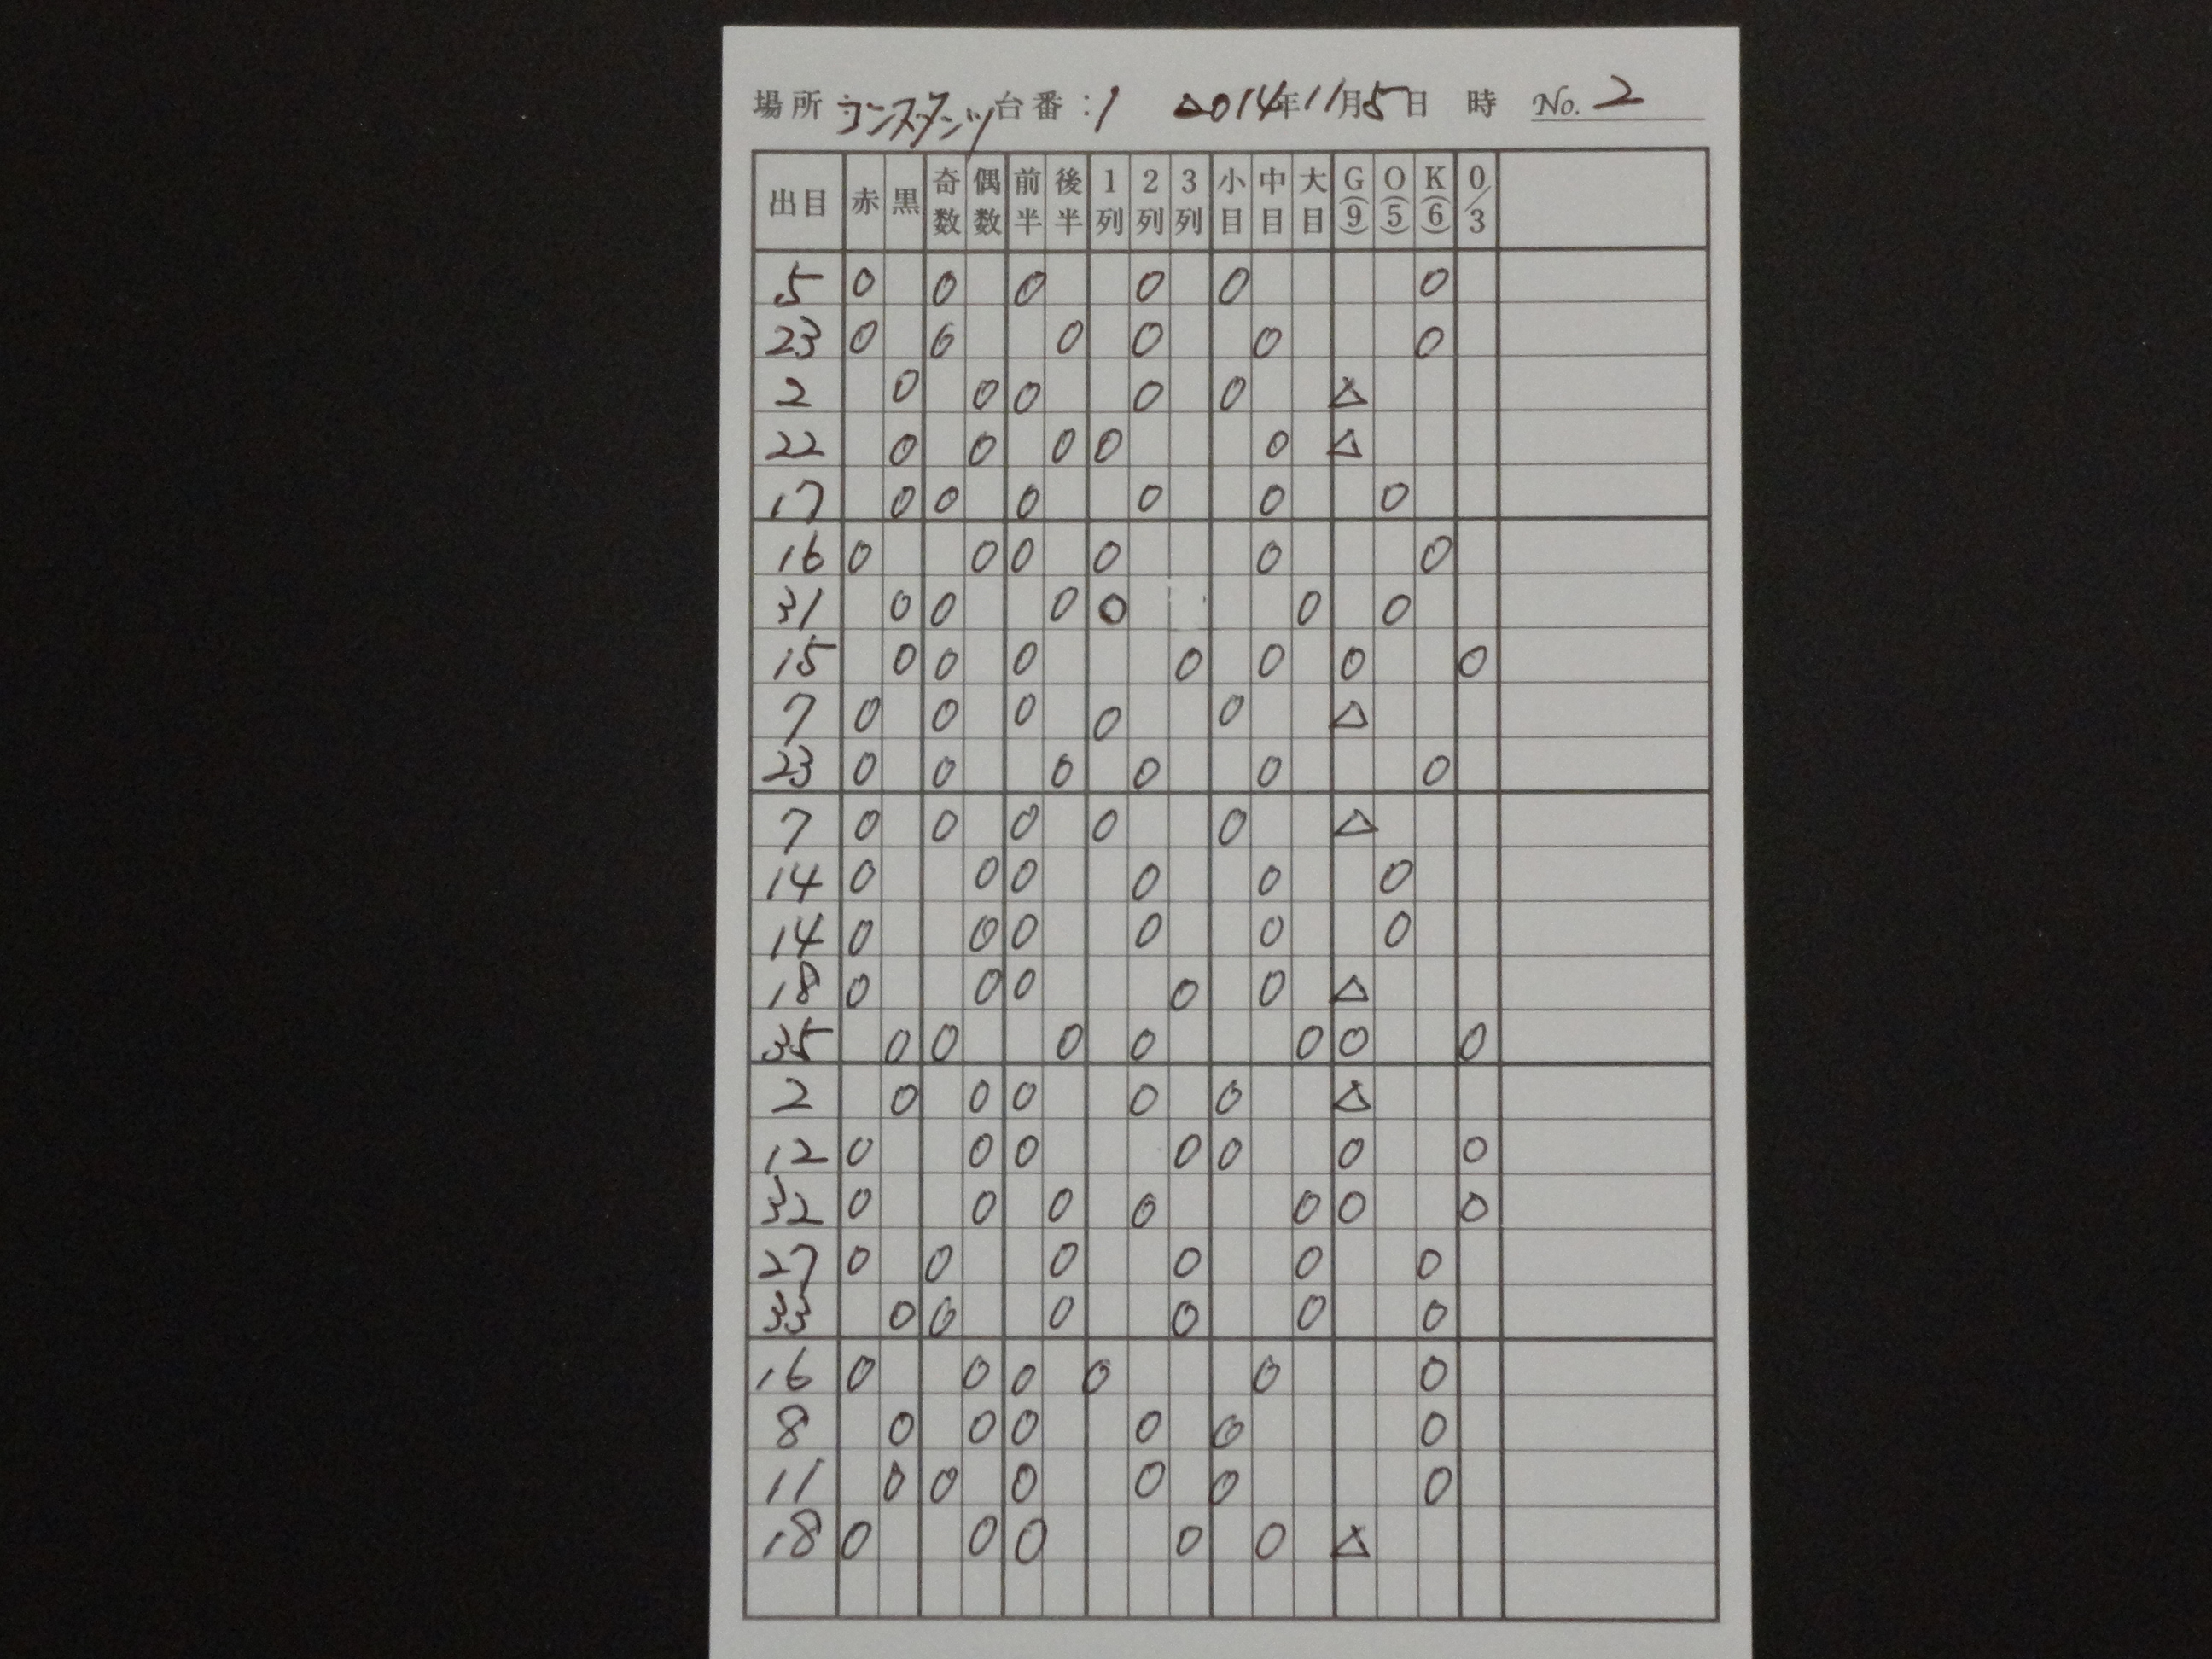 場所 コンスタンツ 台番:1 2014年11月5日 時 No. 2
出目 赤 黒 奇数 偶数 前半 後半 1列 2列 3列 小目 中目 大目 G(9) O(5) K(6) 0/3
5 0 0 0 0 0 0
23 0 0 0 0 0 0
2 0 0 0 0 0 △
22 0 0 0 0 0 △
17 0 0 0 0 0 0
16 0 0 0 0 0 0
31 0 0 0 0 0 0
15 0 0 0 0 0 0 0
7 0 0 0 0 0 △
23 0 0 0 0 0 0
7 0 0 0 0 0 △
14 0 0 0 0 0 0
14 0 0 0 0 0 0
18 0 0 0 0 0 △
35 0 0 0 0 0 0 0
2 0 0 0 0 0 △
12 0 0 0 0 0 0 0
32 0 0 0 0 0 0 0
27 0 0 0 0 0 0
33 0 0 0 0 0 0
16 0 0 0 0 0 0
8 0 0 0 0 0 0
11 0 0 0 0 0 0
18 0 0 0 0 0 △